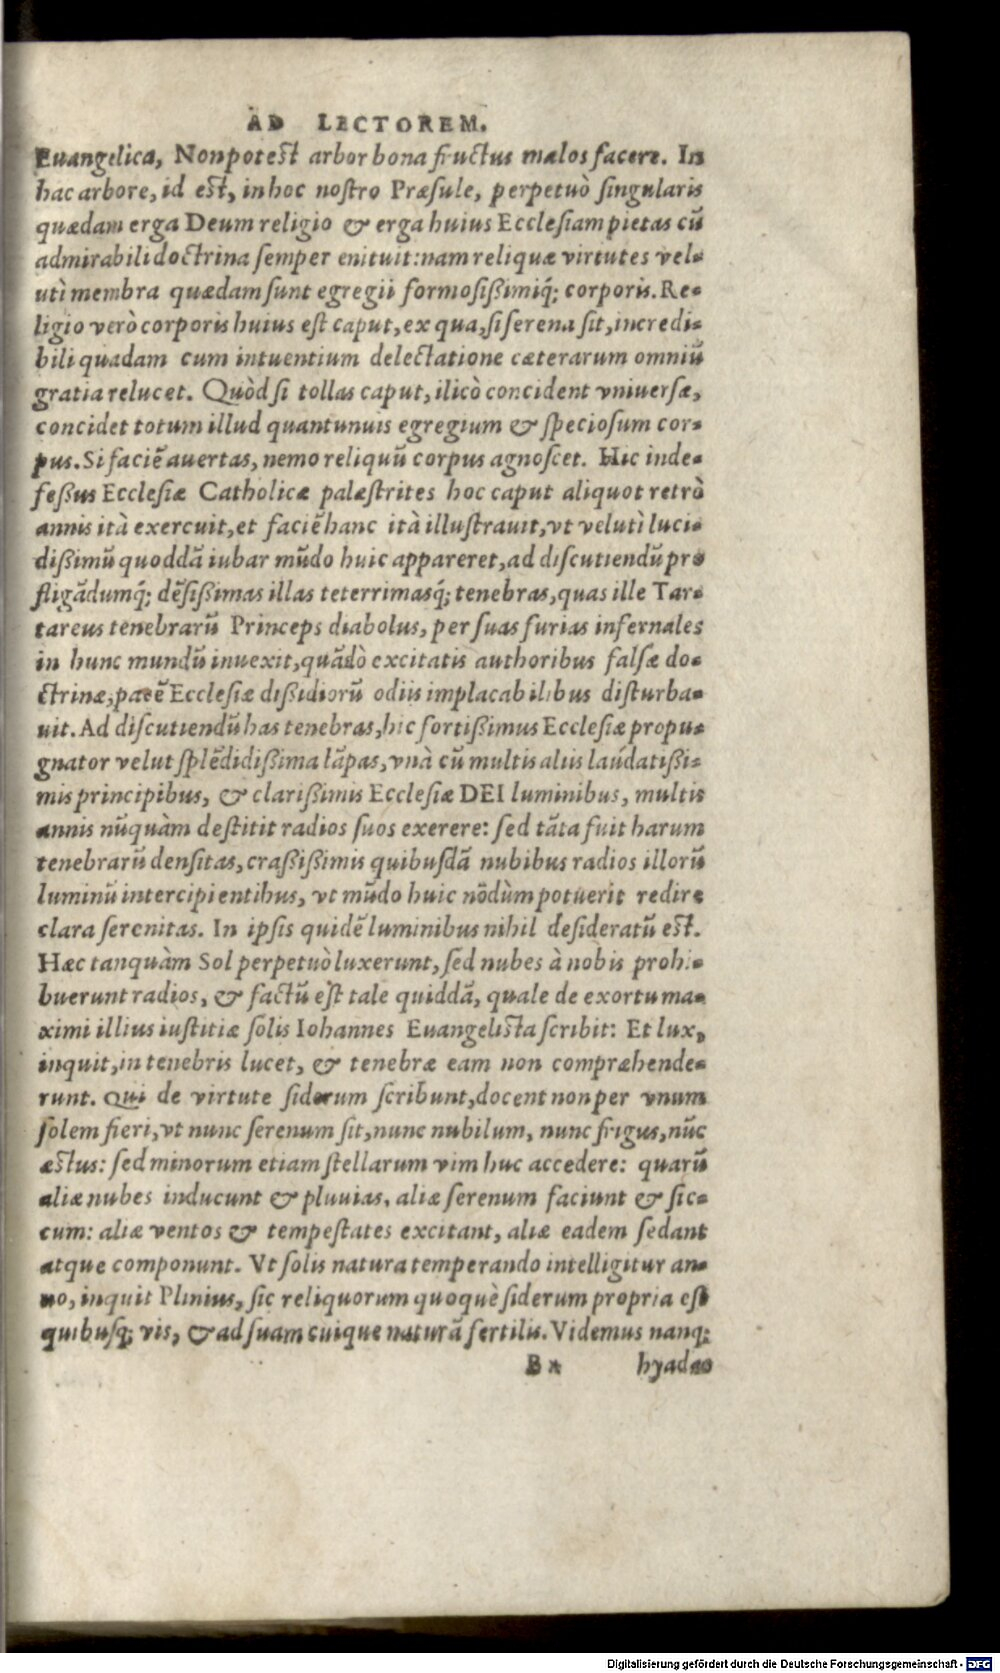 AD LECTOREM.
Euangelica, Non potest arbor bona fructus malos facere. In
hac arbore, id est, in hoc nostro Præsule, perpetuò singularis
quædam erga Deum religio & erga huius Ecclesiam pietas cū
admirabili doctrina semper enituit: nam reliquæ virtutes vel-
uti membra quædam sunt egregii formosißimiq́; corporis. Re-
ligio verò corporis huius est caput, ex qua, si serena sit, incredi-
bili quadam cum intuentium delectatione cæterarum omniū
gratia relucet. Quòd si tollas caput, ilicò concident vniuersæ,
concidet totum illud quantunuis egregium & speciosum cor-
pus. Si faciē auertas, nemo reliquū corpus agnoscet. Hic inde-
feßus Ecclesiæ Catholicæ palæstrites hoc caput aliquot retrò
annis ità exercuit, et faciē hanc ità illustrauit, vt velutì luci-
dißimū quoddā iubar mūdo huic appareret, ad discutiendū pro
fligādumq́; dēsißimas illas teterrimasq́; tenebras, quas ille Tar-
tareus tenebrarū Princeps diabolus, per suas furias infernales
in hunc mundū inuexit, quādò excitatis authoribus falsæ do-
ctrinæ, pacē Ecclesiæ dißidiorū odiis implacabilibus disturba-
uit. Ad discutiendū has tenebras, hic fortißimus Ecclesiæ propu-
gnator velut splēdidißima lāpas, vnà cū multis aliis laudatißi-
mis principibus, & clarißimis Ecclesiæ DEI luminibus, multis
annis nūquàm destitit radios suos exerere: sed tāta fuit harum
tenebrarū densitas, craßißimis quibusdā nubibus radios illorū
luminū intercipientibus, vt mūdo huic nōdùm potuerit redire
clara serenitas. In ipsis quidē luminibus nihil desideratū est.
Hæc tanquàm Sol perpetuò luxerunt, sed nubes à nobis prohi-
buerunt radios, & factū est tale quiddā, quale de exortu ma-
ximi illius iustitiæ solis Iohannes Euangelista scribit: Et lux,
inquit, in tenebris lucet, & tenebræ eam non compræhende-
runt. Qui de virtute siderum scribunt, docent non per vnum
solem fieri, vt nunc serenum sit, nunc nubilum, nunc frigus, nūc
æstus: sed minorum etiam stellarum vim huc accedere: quarū
aliæ nubes inducunt & pluuias, aliæ serenum faciunt & sic-
cum: aliæ ventos & tempestates excitant, aliæ eadem sedant
atque componunt. Vt solis natura temperando intelligitur an-
no, inquit Plinius, sic reliquorum quoquè siderum propria est
quibusq; vis, & ad suam cuique naturā fertilis. Videmus nanq;
B* hyadas
Digitalisierung gefördert durch die Deutsche Forschungsgemeinschaft - DFG